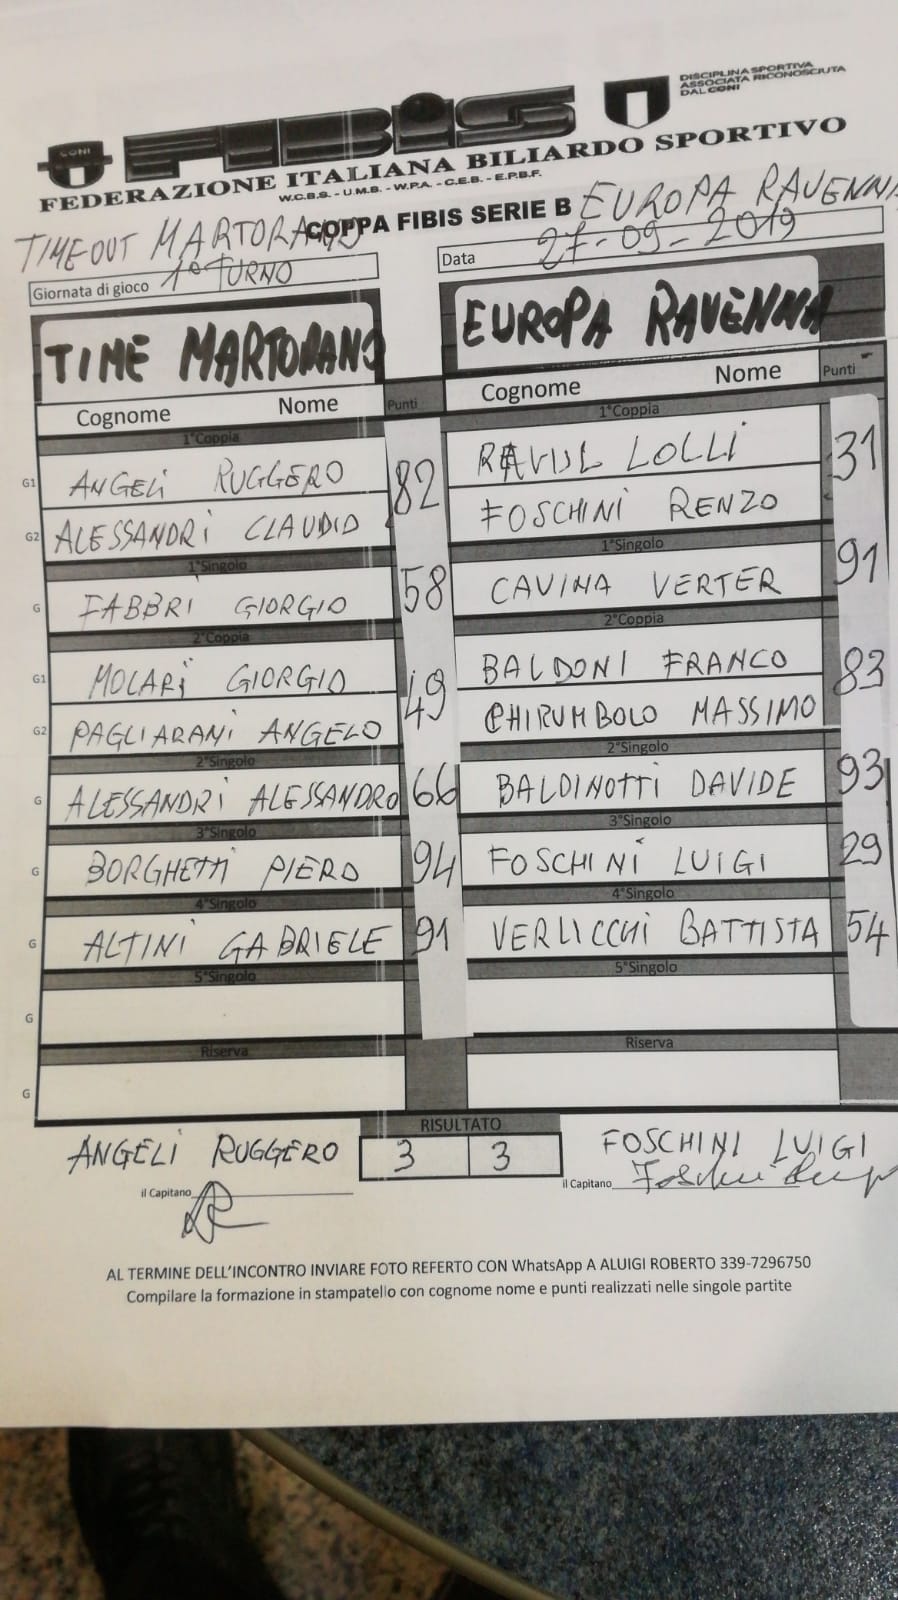 DISCIPLINA SPORTIVA
ASSOCIATA RICONOSCIUTA
DAL CONI
CONI
FIBIS
FEDERAZIONE ITALIANA BILIARDO SPORTIVO
W.C.B.S. - U.M.B. - W.P.A. - C.E.B. - E.P.B.F.
TIMEOUT MARTORANO COPPA FIBIS SERIE B EUROPA RAVENNA
Giornata di gioco 1° TURNO Data 27-09-2019
TIME MARTORANO EUROPA RAVENNA
Cognome Nome Punti Cognome Nome Punti
1°Coppia 1°Coppia
G1 ANGELI RUGGERO 82 LOLLI 31
G2 ALESSANDRI CLAUDIO FOSCHINI RENZO
1°Singolo 1°Singolo
G FABBRI GIORGIO 58 CAVINA VERTER 91
2°Coppia 2°Coppia
G1 MOLARI GIORGIO 49 BALDONI FRANCO 83
G2 PAGLIARANI ANGELO CHIRUMBOLO MASSIMO
2°Singolo 2°Singolo
G ALESSANDRI ALESSANDRO 66 BALDINOTTI DAVIDE 93
3°Singolo 3°Singolo
G BORGHETTI PIERO 94 FOSCHINI LUIGI 29
4°Singolo 4°Singolo
G ALTINI GABRIELE 91 VERLICCHI BATTISTA 54
5°Singolo 5°Singolo
G
Riserva Riserva
G
RISULTATO
ANGELI RUGGERO 3 3 FOSCHINI LUIGI
il Capitano il Capitano
AL TERMINE DELL'INCONTRO INVIARE FOTO REFERTO CON WhatsApp A ALUIGI ROBERTO 339-7296750
Compilare la formazione in stampatello con cognome nome e punti realizzati nelle singole partite